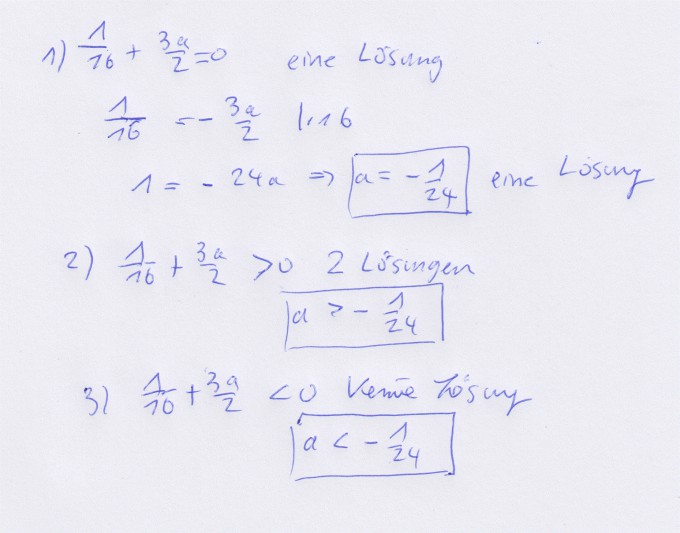 1) 1/16 + 3a/2 = 0 eine Lösung
1/16 = - 3a/2 |·16
1 = - 24a ⇒ a = - 1/24 eine Lösung
2) 1/16 + 3a/2 > 0 2 Lösingen
a > - 1/24
3) 1/16 + 3a/2 < 0 Keine Lösung
a < - 1/24